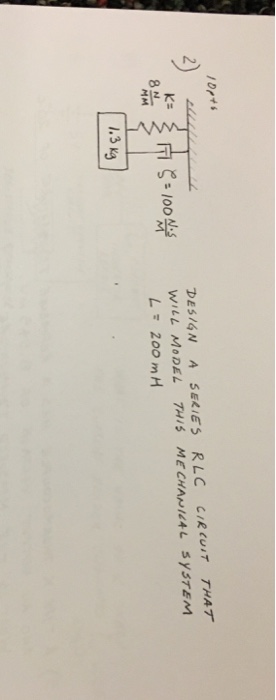 10pts
2)
K=
8 N/MM
ζ = 100 N·S/M
1.3 kg
DESIGN A SERIES RLC CIRCUIT THAT
WILL MODEL THIS MECHANICAL SYSTEM
L = 200 mH